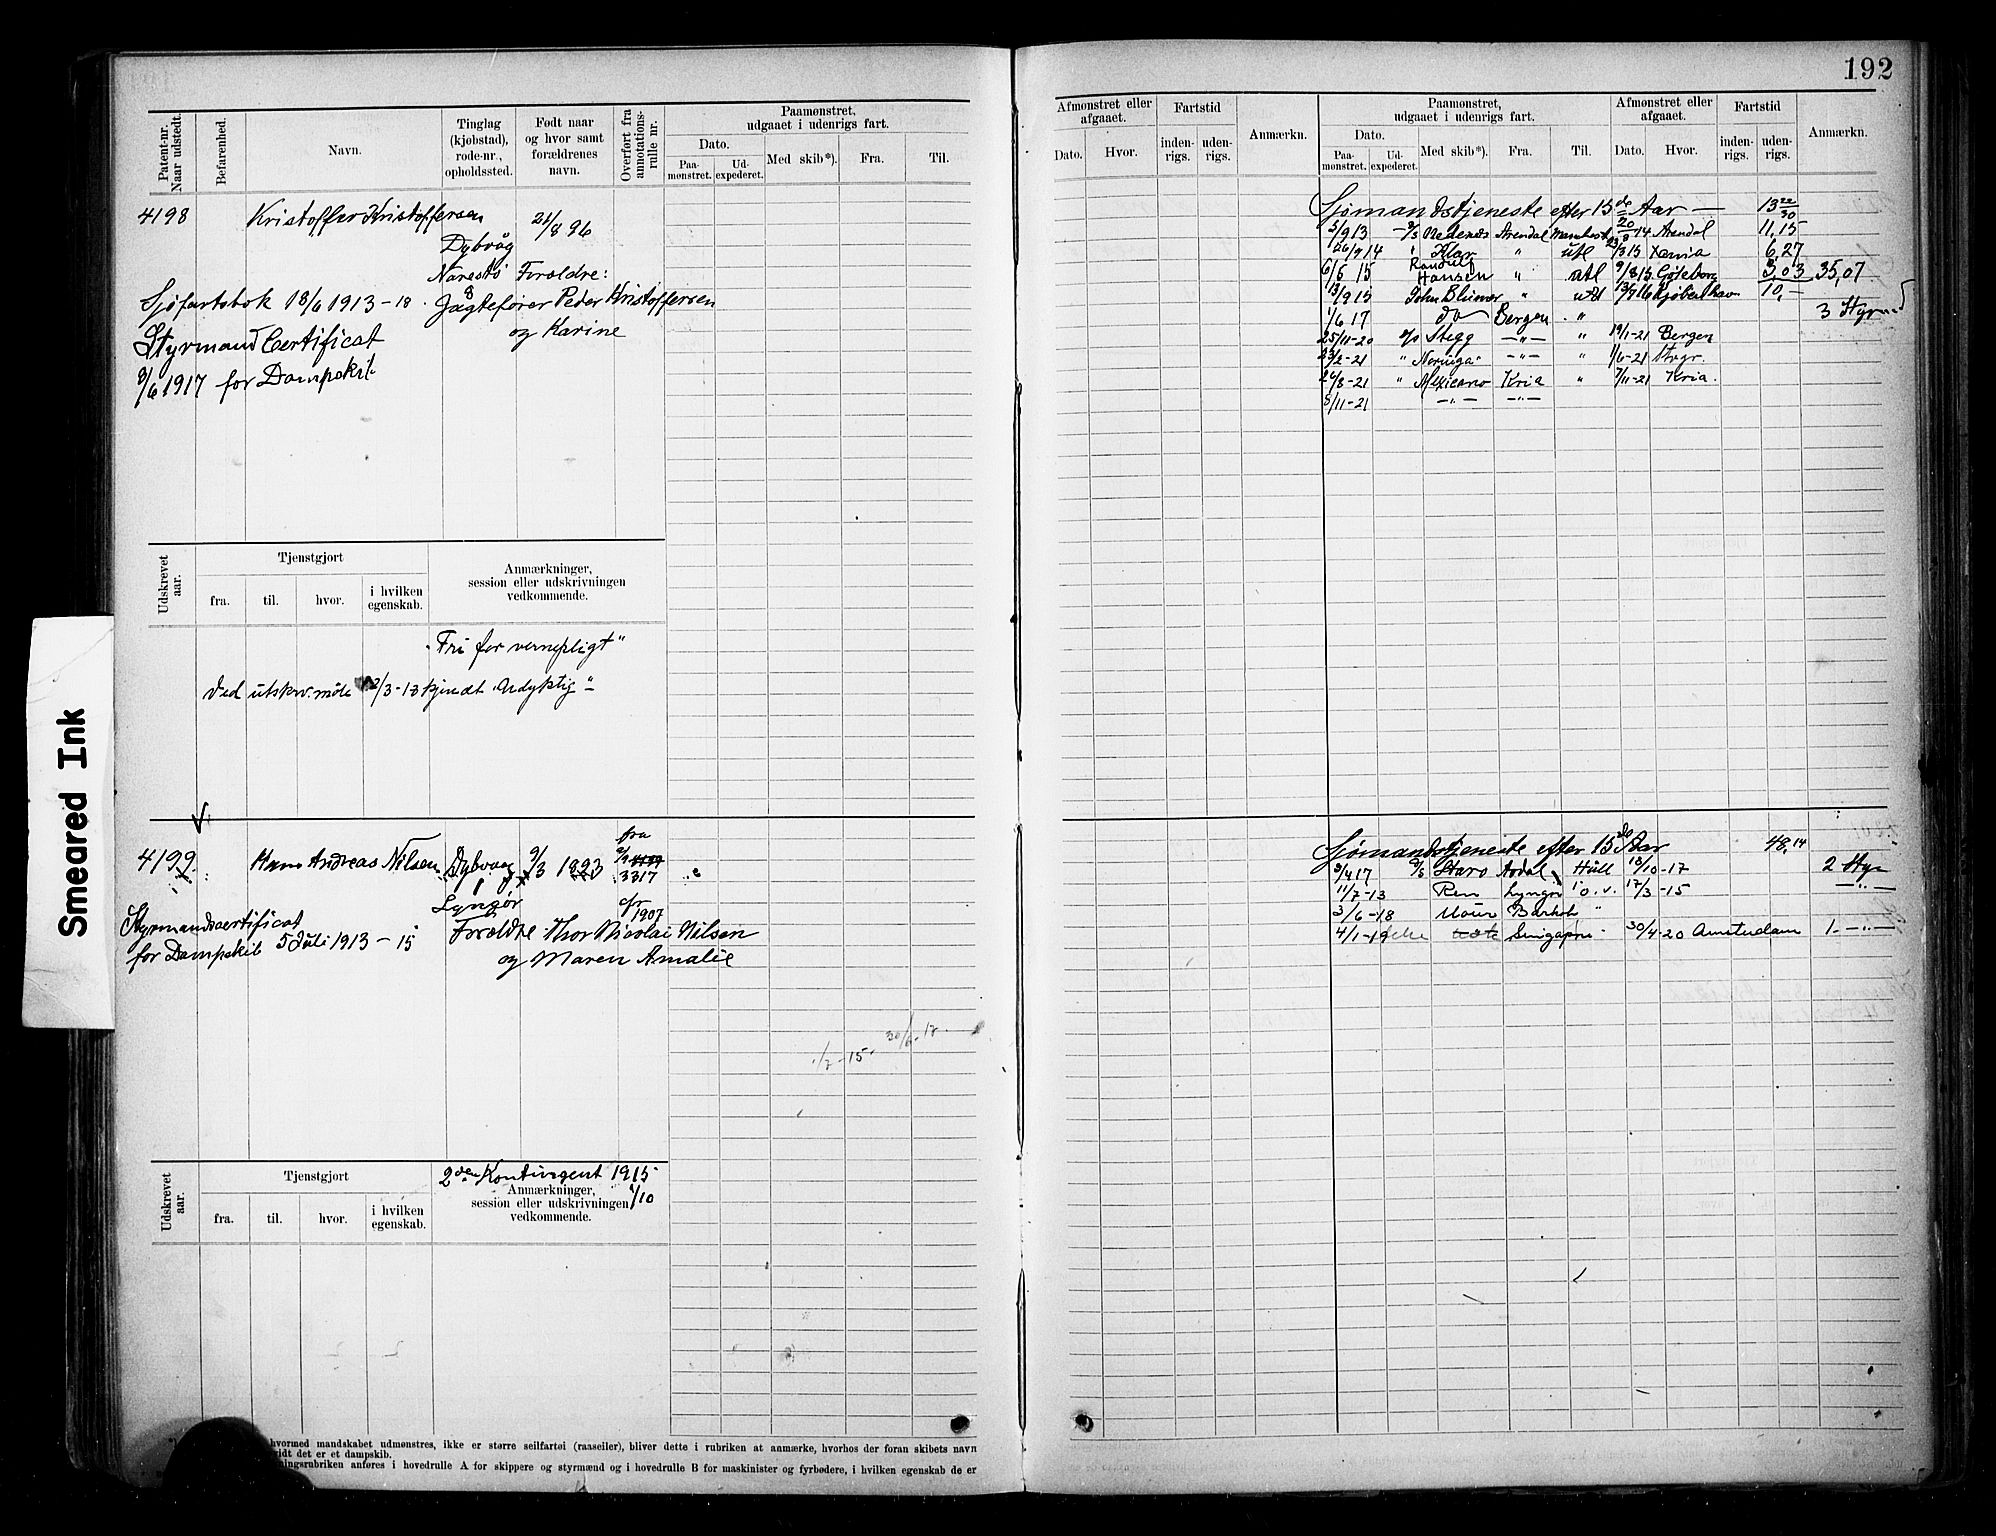 192
Patent-nr. Naar udstedt.
Befarenhed.
Navn.
Tinglag (kjøbstad), rode-nr., opholdssted.
Født naar og hvor samt forældrenes navn.
Overført fra annotations-rulle nr.
Paamønstret, udgaaet i udenrigs fart.
Dato.
Paa-mønstret.
Ud-expederet.
Med skib*).
Fra.
Til.
4198
Kristoffer Kristoffersen
21/8 96
Dybvåg
Narestö Foræeldre:
Sjøfartsbok 18/6 1913-18. Jagtefører Peder Kristoffersen
og Karine
Styrmand Certificat
8/6 1917 for Dampskib
Udskrevet aar.
Tjenstgjort
fra.
til.
hvor.
i hvilken egenskab.
Anmærkninger, session eller udskrivningen vedkommende.
"Fri for vernepligt"
Ved utskrv. møte /3-18 kjendt "Udyktig"
Smeared Ink
4199
Hans Andreas Nilsen
Dybvaag
9/3 1893
fra
3317
1907
Lyngør
Styrmandscertificat
for Dampskib 5 Juli 1913-15
Forældre Thor Nicolai Nilsen
og Maren Amalie
1/7-15
30/6-17
2den Kontingent 1915
1/10
Udskrevet aar.
Tjenstgjort
fra.
til.
hvor.
i hvilken egenskab.
Anmærkninger, session eller udskrivningen vedkommende.
hvormed mandskabet udmønstres, ikke er større seilfartøi (raaseiler), bliver dette i rubriken at anmærke, hvorhos der foran skibets navn
vidt det er et dampskib.
ningsrubriken anføres i hovedrulle A for skippere og styrmænd og i hovedrulle B for maskinister og fyrbødere, i hvilken egenskab de er
Afmønstret eller afgaaet.
Fartstid
Anmærkn.
Dato.
Hvor.
inden-rigs.
uden-rigs.
Paamønstret, udgaaet i udenrigs fart.
Dato.
Paa-mønstret.
Ud-expederet.
Med skib*).
Fra.
Til.
Afmønstret eller afgaaet.
Dato.
Hvor.
Fartstid
inden-rigs.
uden-rigs.
Anmærkn.
Sjømandstjeneste efter 15de Aar — 13 22/30
5/9 13 D/S Nedenes Arendal 20/8 14 Arendal 11,15
26/9 14 " utl 23/3 15 Xania 6,27
6/5 15 Hansen " utl 9/8 15 Göteborg 3,03 35,07
13/9 15 John Blumer " utl 13/9 16 Kjøbenhavn 10,—
1/6 17 do Bergen " 3 Styrmd
25/11-20 Stegg —"— " 19/1-21 Bergen
23/2-21 " Noruega —"— " 1/6-21 Stvgr.
24/8-21 " Mexicano Kria " 7/11-21 Kria.
8/11-21 —"— —"—
Sjømandstjeneste efter 15de Aar 48,14
3/4 17 D/S Staro Hull 18/10-17 2 Styr
11/7-13 Ren Lyngør o.v. 17/3-15 —"—
3/6-18 "
4/1-19 Singapore 30/4-20 Amsterdam 1.—"—